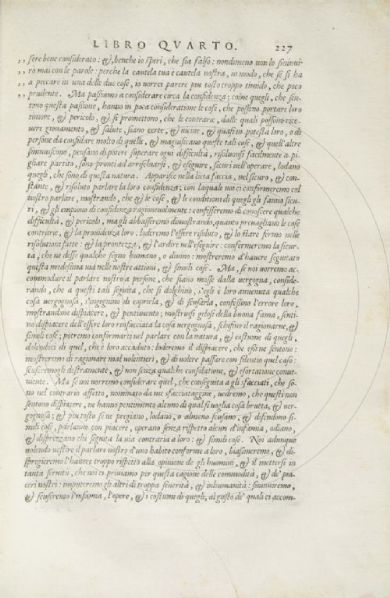 LIBRO QVARTO. 227
,, sere bene considerato: &, benche io speri, che sia falso: nondimeno non lo sicurati-
,, ro mai con le parole: perche la cautela tua è cautela nostra, in modo, che se si ha
,, a peccare in una delle due cose, io vorrei parere piu tosto troppo timido, che poco
,, prudente. Ma passiamo a considerare circa la confidenza: come quegli, che sen-
tono questa passione, hanno in poca consideratione le cose, che possono portare loro
&, pericolo, & si promettono, che le contrarie, dalle quali possono rice-
vere giovamento, & salute, siano certe, & sicure, & quasi in posta loro, o di
persone da considare molto di quelle, & magnificano queste tali cose, & quell'altre
sminuiscono, pensano di potere superare ogni difficultà, risolvonsi facilmente a pi-
gliare partito, sono pronti ad arrischiarsi, & eseguire, sicuri nell'operare, lodano
quegli, che sono di questa natura. Apparisce nella lieta faccia, nel sicuro, & con-
stante, & risoluto parlare la loro confidenza; con laquale noi ci confirmeremo col
nostro parlare, mostrando, che & le cose, & le conditioni di quegli gli fanno sicu-
ri, & gli empiono di confidenza ragionevolmente: confesseremo di conoscere qualche
difficultà, & pericolo, ma gli abbasseremo dimostrando, quanto prevagliano le cose
contrarie, & la providenza loro: loderemo l'essere risoluto, & lo stare fermo nelle
risolutioni fatte: & la prontezza, & l'ardire nell'eseguire: confermeremo la sicur-
tà, che ne desse qualche segno humano, o divino: mostreremo d'havere seguitato
questa medesima via nelle nostre attioni, & simili cose. Ma, se noi vorremo ac-
commodare il parlare nostro a persone, che siano mosse dalla vergogna, conside-
rando, che a questi tali seguita, che si dolghino, s'egli è loro avvenuta qualche
cosa vergognosa, s'ingegnino di coprirla, & di scusarla, confessino l'errore loro,
mostrandone dispiacere, & pentimento; mostrinsi gelosi della buona fama, senti-
no dispiacere dell'essere loro rinfacciata la cosa vergognosa, schifino il ragionarne, &
simili cose; potremo confirmarci nel parlare con la natura, & costume di quegli,
dolendoci di quel, che è loro accaduto: loderemo il dispiacere, che essi ne sentono:
mostreremo di ragionare mal volentieri, & di volere passare con silentio quel caso:
scuseremogli destramente, & non senza qualche consolatione, & esortatione conve-
niente. Ma se noi vorremo considerare quel, che conseguita a gli sfacciati, che so-
no nel contrario affetto, nominato da noi sfacciataggine, vedremo, che questi non
sentono dispiacere, ne hanno pentimento alcuno di qual si voglia cosa brutta, & ver-
gognosa; & piu tosto se ne pregiano, lodansi, o almeno scusano, & difendono si-
mili cose, parlando con piacere, operano senza rispetto alcuno d'infamia, odiano,
& dispregiano chi seguita la via contraria a loro: & simili cose. Noi adunque
volendo vestire il parlare nostro d'uno habito conforme a loro, biasimeremo, & di-
spregieremo l'havere troppo rispetto alla opinione de gli huomini, & il mettersi in
tanta servitù, che noi ci priviamo per questa cagione delle commodità, & de' pia-
ceri nostri: imputeremo gli altri di troppa severità, & inhumanità: sminuiremo,
& scuseremo l'infamia, l'opere, & i costumi di quegli, al gusto de' quali ci accom-